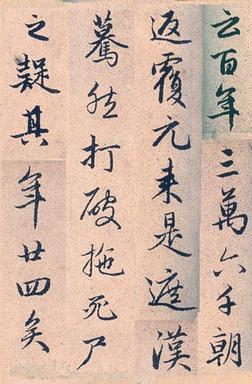 云百年三萬六千朝
返覆元來是遮漢
驀然打破拖死尸
之疑其年廿四矣